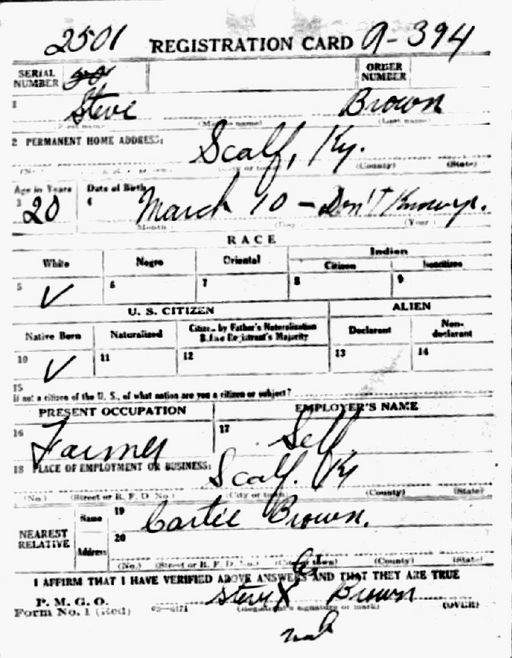 2501 REGISTRATION CARD A-394
SERIAL NUMBER ORDER NUMBER
1 Steve Brown
(First name) (Middle name) (Last name)
2 PERMANENT HOME ADDRESS:
Scalf, Ky.
(No.) (City or town) (County) (State)
Age in Years Date of Birth
3 20 4 March 10 - Don't Know yr.
(Month) (Day) (Year)
RACE
White Negro Oriental Indian
Citizen Noncitizen
5 ✓ 6 7 8 9
U. S. CITIZEN ALIEN
Native Born Naturalized Citizen by Father's Naturalization Before Registrant's Majority Declarant Non-declarant
10 ✓ 11 12 13 14
15
If not a citizen of the U. S., of what nation are you a citizen or subject?
PRESENT OCCUPATION EMPLOYER'S NAME
16 Farmer 17 Self
18 PLACE OF EMPLOYMENT OR BUSINESS:
Scalf. Ky
(No.) (Street or R. F. D. No.) (City or town) (County) (State)
NEAREST RELATIVE
Name 19 Cartee Brown.
Address 20
(No.) (Street or R. F. D. No.) (City or town) (County) (State)
I AFFIRM THAT I HAVE VERIFIED ABOVE ANSWERS AND THAT THEY ARE TRUE
his
P. M. G. O. Steve X Brown
Form No. 1 (Red) (Registrant's signature or mark) (OVER)